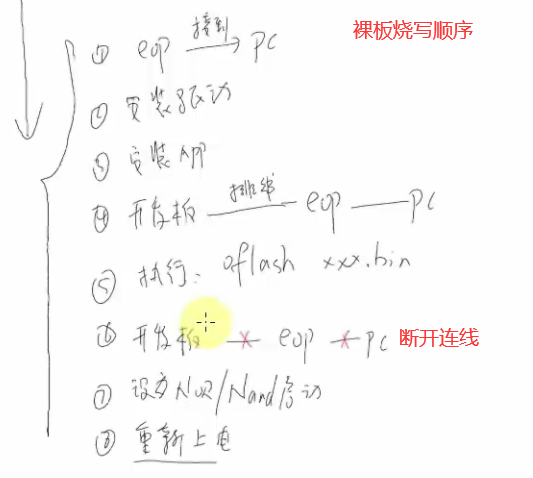 裸板烧写顺序
① eop 接到 PC
② 安装驱动
③ 安装APP
④ 开发板 排线 eop PC
⑤ 执行: oflash xxx.bin
⑥ 开发板 x eop x PC 断开连线
⑦ 设为NOR/Nand启动
⑧ 重新上电